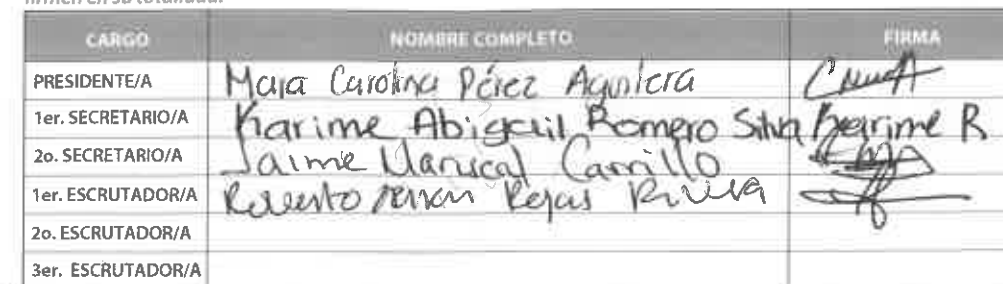 firmen en su totalidad.
CARGO NOMBRE COMPLETO FIRMA
PRESIDENTE/A Maja Carolina Pérez Aguilera
1er. SECRETARIO/A Karime Abigail Romero Silva Karime R
2o. SECRETARIO/A Jaime Mariscal Carrillo
1er. ESCRUTADOR/A Rojas Rivera
2o. ESCRUTADOR/A
3er. ESCRUTADOR/A